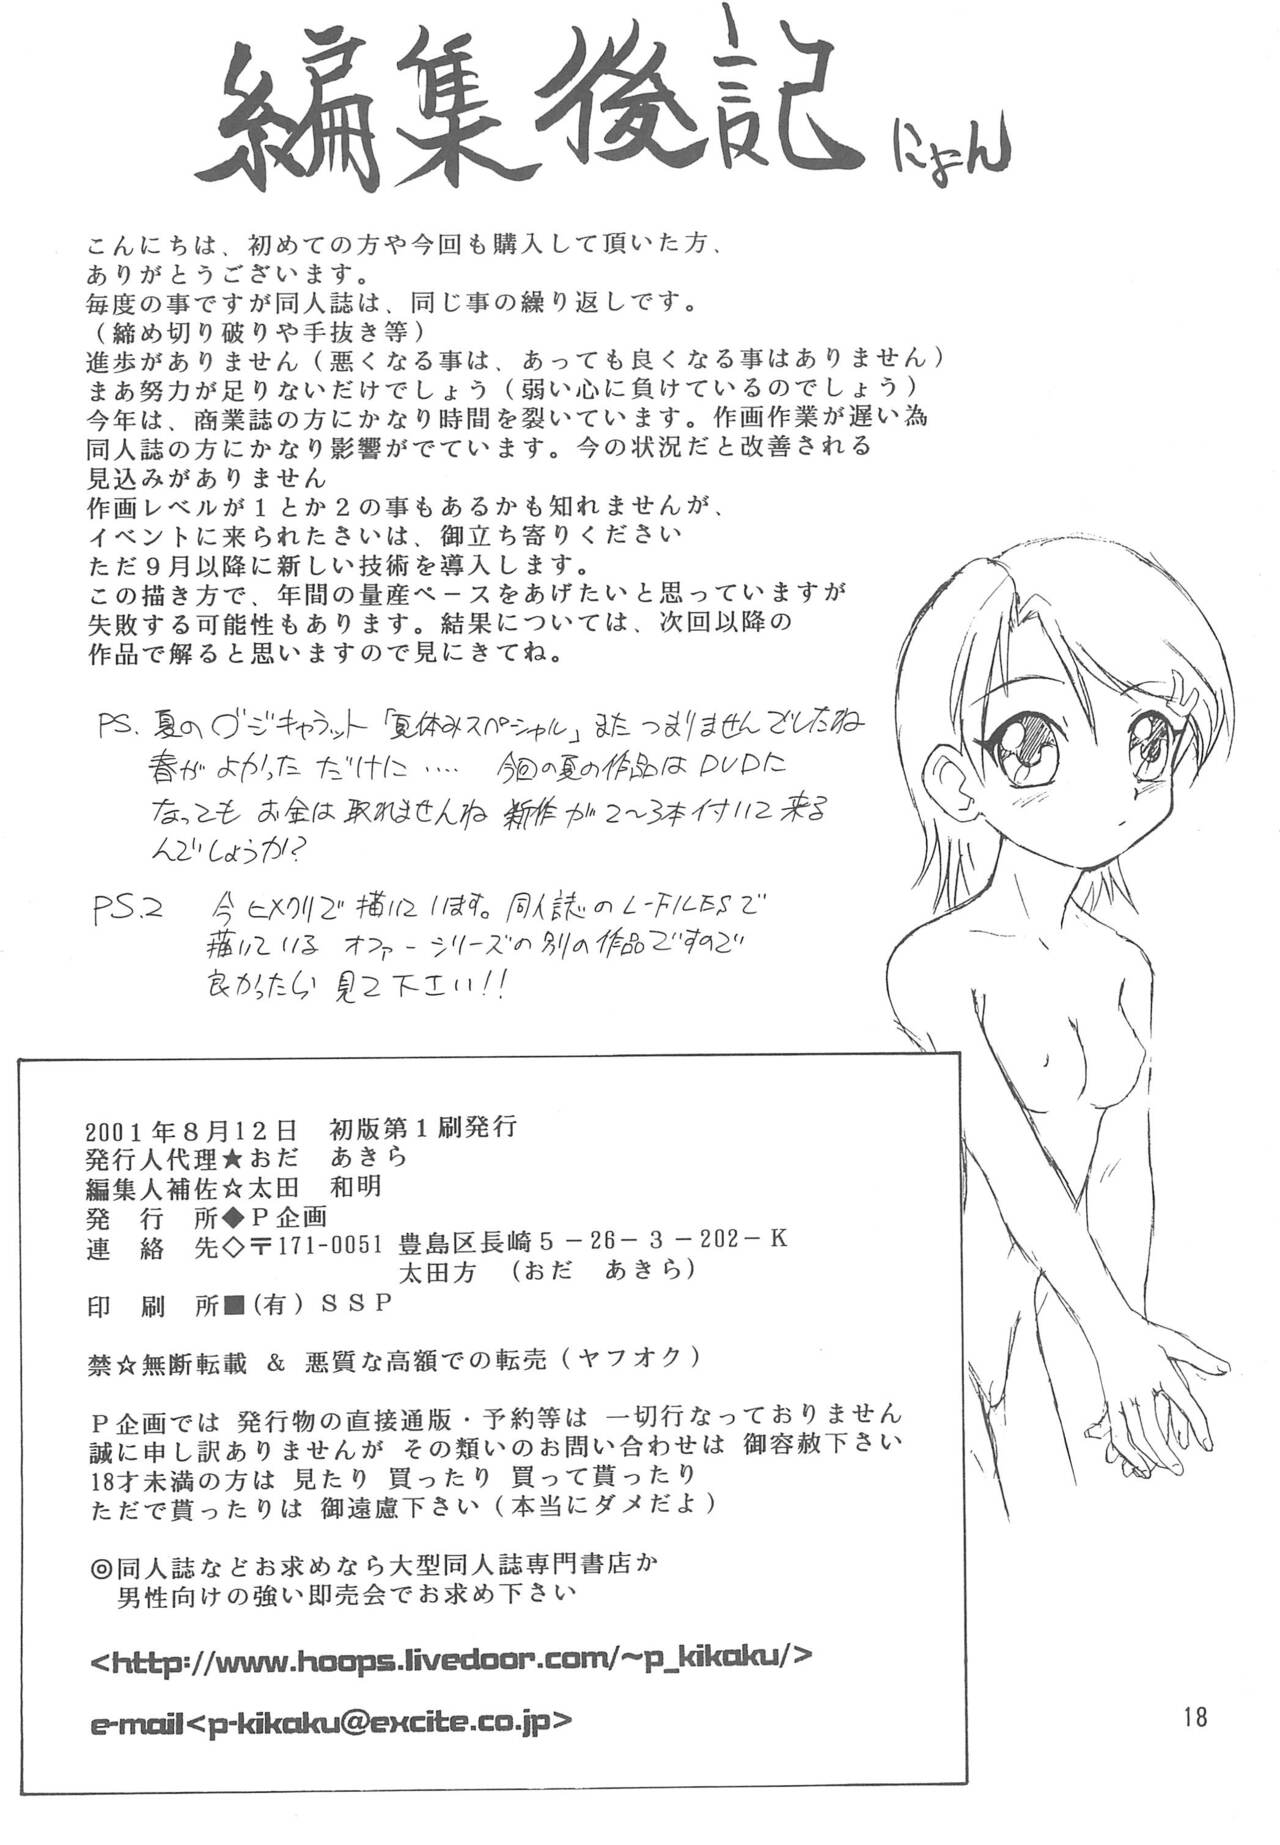 編集後記 にょん
こんにちは、初めての方や今回も購入して頂いた方、
ありがとうございます。
毎度の事ですが同人誌は、同じ事の繰り返しです。
(締め切り破りや手抜き等)
進歩がありません(悪くなる事は、あっても良くなる事はありません)
まあ努力が足りないだけでしょう(弱い心に負けているのでしょう)
今年は、商業誌の方にかなり時間を裂いています。作画作業が遅い為
同人誌の方にかなり影響がでています。今の状況だと改善される
見込みがありません
作画レベルが1とか2の事もあるかも知れませんが、
イベントに来られたさいは、御立ち寄りください
ただ9月以降に新しい技術を導入します。
この描き方で、年間の量産ペースをあげたいと思っていますが
失敗する可能性もあります。結果については、次回以降の
作品で解ると思いますので見にきてね。
PS. 夏のデジキャラット「夏休みスペシャル」またつまりませんでしたね
春がよかっただけに‥‥ 今回の夏の作品はDVDに
なってもお金は取れませんね 新作が2〜3本付いて来る
んでしょうか?
PS.2 今ヒメクリで描いています。同人誌のL-FILESで
描いているオファーシリーズの別の作品ですので
良かったら見て下さい!!
2001年8月12日 初版第1刷発行
発行人代理★おだ あきら
編集人補佐☆太田 和明
発 行 所◆P企画
連 絡 先◇〒171-0051 豊島区長崎5-26-3-202-K
太田方 (おだ あきら)
印 刷 所■(有)SSP
禁☆無断転載 & 悪質な高額での転売(ヤフオク)
P企画では 発行物の直接通販・予約等は 一切行なっておりません
誠に申し訳ありませんが その類いのお問い合わせは 御容赦下さい
18才未満の方は 見たり 買ったり 買って貰ったり
ただで貰ったりは 御遠慮下さい(本当にダメだよ)
◎同人誌などお求めなら大型同人誌専門書店か
男性向けの強い即売会でお求め下さい
<http://www.hoops.livedoor.com/~p_kikaku/>
e-mail<p-kikaku@excite.co.jp>
18